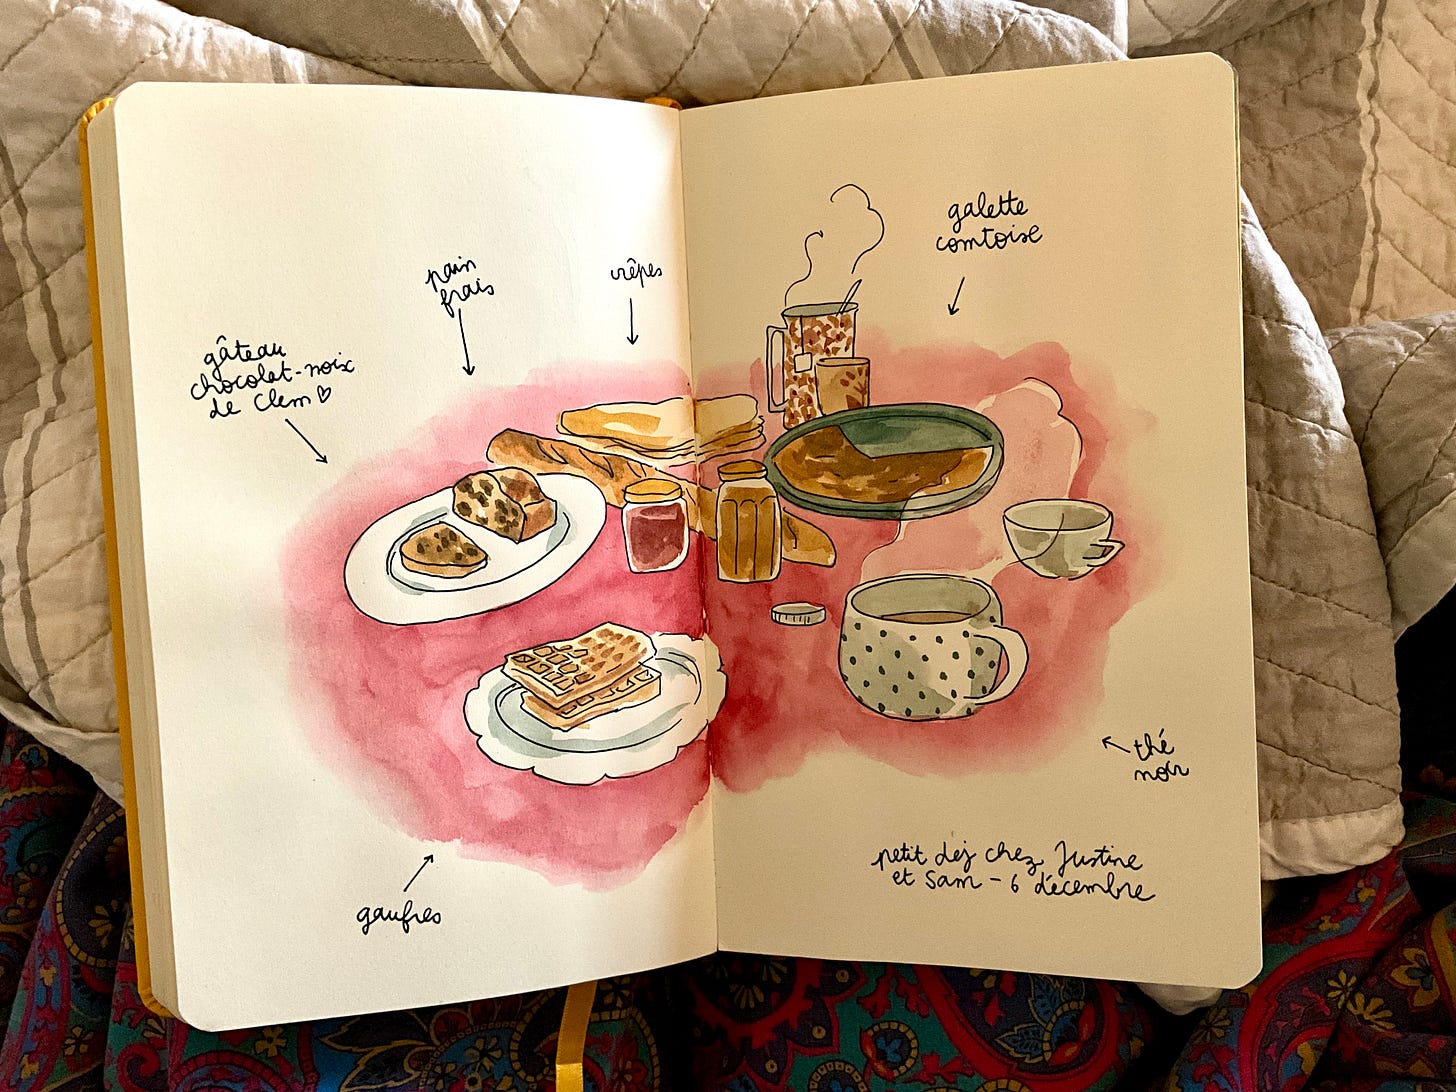 gâteau
chocolat-noix
de Clem ♡
pain
frais
crêpes
galette
comtoise
thé
noir
gaufres
petit dej chez Justine
et Sam - 6 décembre